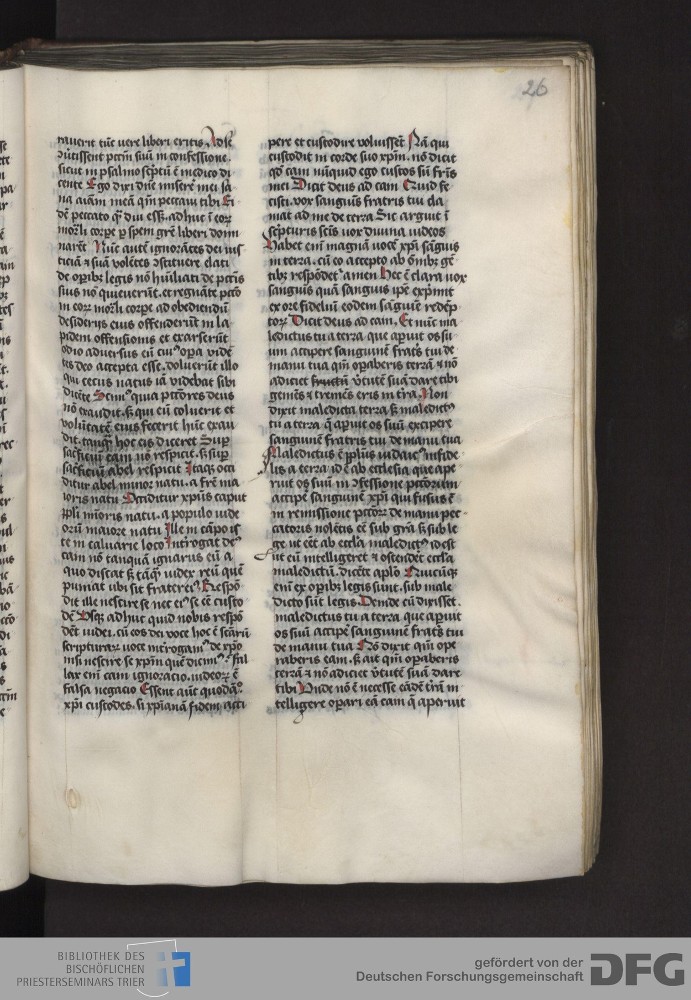 26
rauerit tūc vere liberi eritis Adse
cutissent pctm̄ suū in confessione.
sicut in psalmo scptū ē medico di
cente Ego dixi dn̄e miserē mei sa
na aīam meā qm̄ peccaui tibi Ei
dē peccato qd diu esset adhuc ī corꝑ
mortali corpe p spem grē liberi domi
narēt Nūc autē ignorātes dei ius
ticiā ⁊ suā volētes ↄstituere elati
de opib; legis nō huīliati de pctīs
suis nō queuerūt. et regnāte pctō
in eorum mortali corpe ad obediendū
desiderijs eius offenderūt in la
pidem offensionis et exarserūt
odio adversus eū cui᷒ opa vidē
tes deo accepta esse. doluerūt illo
qui cecus natus iā videbat sibi
dicēte Scim᷒ quia pctōres deus
nō exaudit. s; qui eū coluerit et
volūtatē eius fecerit hūc exau
dit. tanqȝ hoc eis diceret Sup
sacficiū caim nō respicit. s; sup
sacficiū abel respicit Itaqȝ occi
ditur abel minor natu. a frē ma
ioris natu Occiditur xp̄us caput
ppli mīoris natu. a populo iude
orū maiore natu Ille in cāpo is
te in caluarie loco Introgat de᷒
caim nō tanquā ignarus eū a
quo discat s; tāqȝ iudex reū quē
puniat ubi sit frater ei᷒. Respō
dit ille nescire se nec ei᷒ se eē custo
dē Vsqȝ adhuc quid nobis respō
dēt iudei. cū eos dei voce hoc ē scarū
scripturarum uoce introgam᷒ de xp̄o
nisi nescire se xp̄m quē dicim᷒. Fal
lax eīm caim ignoracio. iudeorum ē
falsa negacio Essent aūt quodā᷒
xp̄i custodes. si xp̄ianā fidem acci
pere et custodire voluissēt Nā qui
custodit in corde suo xp̄m. nō dicit
qd cam nūquid ego custos sū fr̄is
mei Dicit deus ad cam Quid fe
cisti. vox sanguīs fratris tui cla
mat ad me de terra Sic arguit ī
scpturis scīs vox diuina iudeos
Habet eīm magnā uocē xp̄i sāguis
in terra. cū eo accepto ab oīmb; gē
tib; respōdet᷒ amen hec ē clara uox
sanguīs quā sanguis ipē expmit
ex ore fidelium eodem sāguīe redēp
torum Dicit deus ad caim. Et nūc ma
ledictus tu a terra que apuit os su
um accipere sanguinē fratrs tui de
manu tua qm̄ opaberis terrā ⁊ nō
adiciet v̄tutē suā dare tibi
gemēs ⁊ tremēs eris in tra. Non
dixit maledicta terra s; maledict᷒
tu a terra q apuit os suū excipere
sanguinē fratris tui de manu tua
Maledictus ē pplus iudaic᷒ infide
lis a terra. id ē ab ecclesia que ape
ruit os suū in ↄfessione pctōrum
accipe sanguinē xp̄i qui fusus ē
in remissionē pctōrum de manu pec
catoris nolētis eē sub grā s; sub le
ge ut eēt ab eccla maledict᷒ id est
ut eū intelligeret ⁊ ostendet eccla
maledictū. dicēte aplo Quicūqȝ
enī ex opib; legis sunt. sub male
dicto sūt legis. Deinde cū dixisset
maledictus tu a terra que apuit
os suū accipe sanguinē fratrs tui
de manu tua Nō dixit qm̄ ope
raberis eam. s; ait qm̄ opaberis
terrā ⁊ nō adiciet v̄tutē suā dare
tibi Vnde nō ē necesse eādē t̄rā in
telligere opari eā cam q aperuit
BIBLIOTHEK DES
BISCHÖFLICHEN
PRIESTERSEMINARS TRIER
gefördert von der
Deutschen Forschungsgemeinschaft
DFG